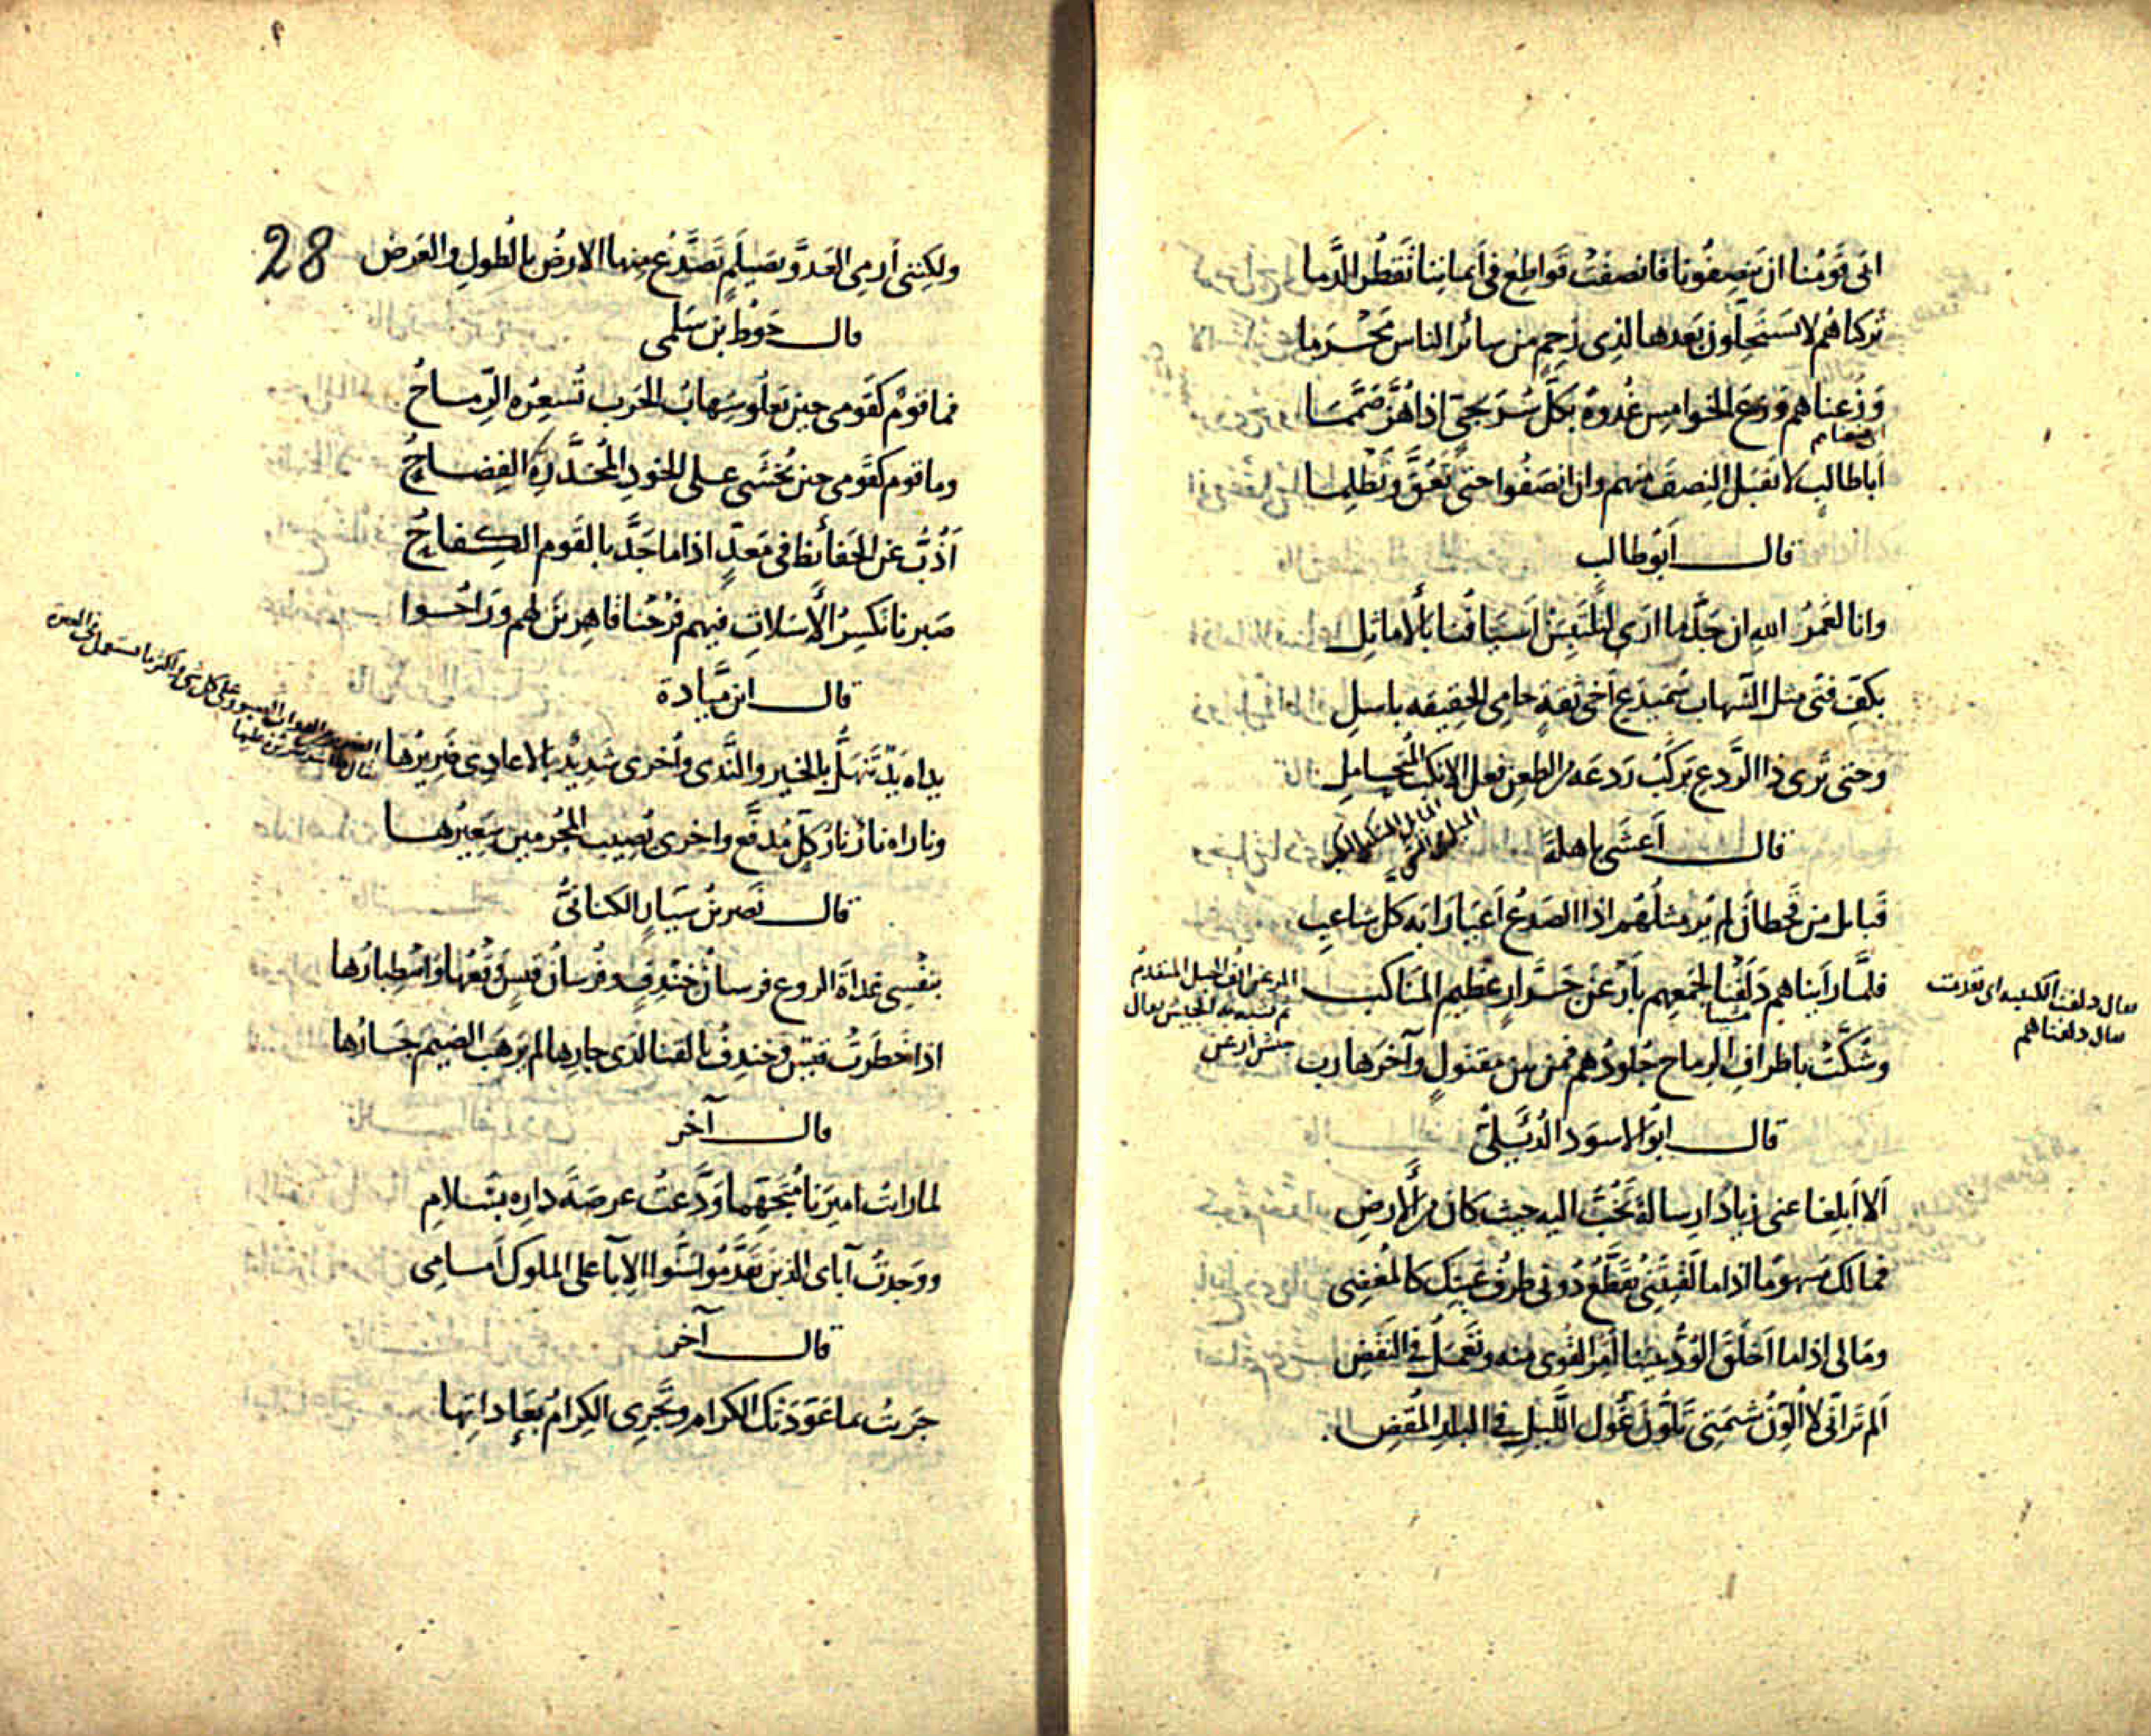 ابى قومنا ان ينصفونا فانصفت قواطع في أيماننا تقطر الدما
تركناهم لا يستحلون بعدها لذي رحم من سائر الناس محرما
وزعناهم وزع الخوامس غدوة بكل سريجي اذا هز صمما
أباطالب لا تقبل النصف منهم وان انصفوا حتى تعق وتظلما
قال أبو طالب
وانا لعمر الله ان جد ما ارى لتلتبسن أسيافنا بالأماثل
بكف فتى مثل الشهاب سميدع أخي ثقة حامي الحقيقه باسل
وحتى ترى ذا الردع يركب ردعه من الطعن فعل الانكب المتحامل
قال أعشى باهلة
قبايل من قحطان لم ير مثلهم اذا الصدع أعيا رابه كل شاعب
فلما رأيناهم دلفنا لجمعهم بأرعن جرار عظيم المناكب
المرعن انف الجبل المتقدم
ثم شبه به الجيش يقال
جيش ارعن
يقال دلفت الكتيبه اى تقدمت
يقال دلفناهم
وشكت باطراف الرماح جلودهم فمن بين مقتول وآخر هارب
قال ابو الاسود الدئيلي
ألا أبلغا عني زيادا رسالة تخب اليه حيث كان من الأرض
فمالك سهوما اذا ما لقيتني تقطع دوني طرف عينك كالمغضي
ومالي اذا ما اخلق الود بيننا أمر القوى منه وتعمل في النقض
ألم تر اني لا ألون شيمتي تلون غول الليل في البلد المقض
28
ولكنني أرمي العدو بصيلم تصدع منها الارض بالطول والعرض
قال حوط بن سلمى
فما قوم كقومي حين يعلو شهاب الحرب تسعره الرماح
وما قوم كقومي حين يخشى على الخود المخدرة الفضاح
أذب عن الحفائظ في معد اذا ما جد بالقوم الكفاح
صبرنا نكسر الأسلات فيهم فرحنا قاهرين لهم وراحوا
قال ابن ميادة
يداه يد تنهل بالخير والندى وأخرى شديد بالاعادي ضريرها
وناراه نار نار كل مدفع واخرى يصيب المجرمين سعيرها
قال نصر بن سيار الكناني
بنفسي غداة الروع فرسان خندف وفرسان قيس وقعها واصطبارها
اذا خطرت قيس وخندف بالقنا لدى جارها لم يرهب الضيم جارها
قال آخر
لما رايت اميرنا متجهما ودعت عرصة داره بسلام
ووجدت آباى الذين تقدموا سنوا الإبا على الملوك أمامي
قال آخر
جريت بما عودتك الكرام وتجري الكرام بعاداتها